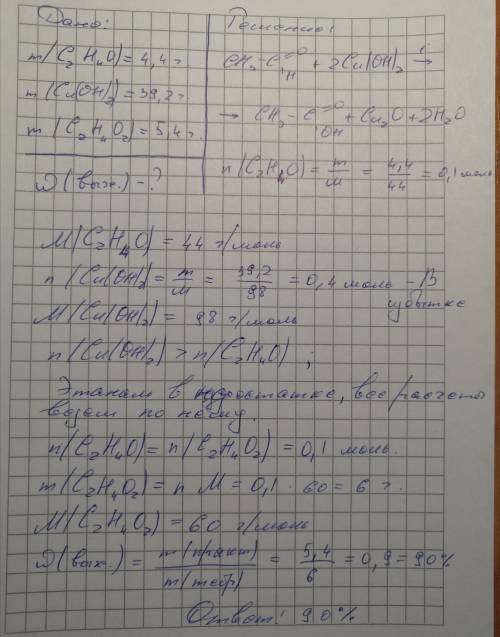 Дано:
m(C₂H₄O)=4,4 г.
m(Cu(OH)₂)=39,2 г.
m(C₂H₄O₂)=5,4 г.
D(вых.) - ?
Решение:
CH₃-C(=O)H + 2Cu(OH)₂ t→
→ CH₃-C(=O)OH + Cu₂O + 2H₂O
n(C₂H₄O) = m/M = 4,4/44 = 0,1 моль
M(C₂H₄O) = 44 г/моль
n(Cu(OH)₂) = m/M = 39,2/98 = 0,4 моль - В избытке
M(Cu(OH)₂) = 98 г/моль
n(Cu(OH)₂) > n(C₂H₄O);
Этаналь в недостатке, все расчеты
ведем по нему.
n(C₂H₄O) = n(C₂H₄O₂) = 0,1 моль.
m(C₂H₄O₂) = n M = 0,1 · 60 = 6 г.
M(C₂H₄O₂) = 60 г/моль
D(вых.) = m(практ)/m(теор) = 5,4/6 = 0,9 = 90%
Ответ: 90%